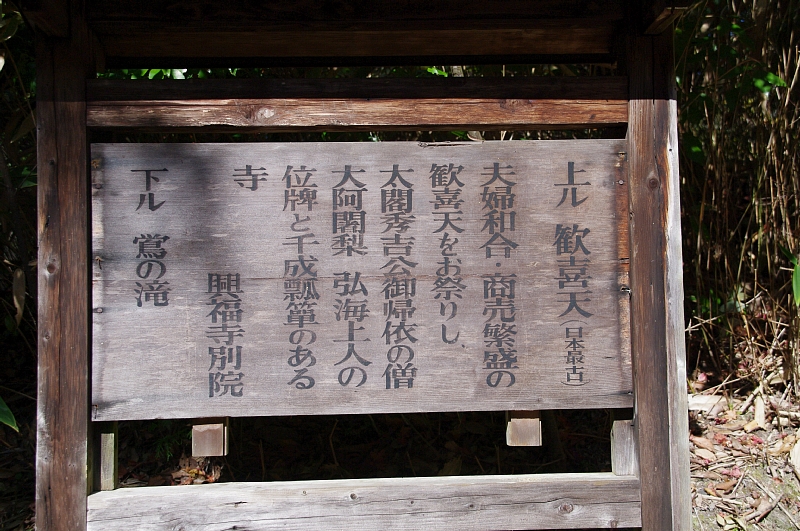 上ル 歓喜天(日本最古)
夫婦和合・商売繁盛の
歓喜天をお祭りし、
太閤秀吉公御帰依の僧
大阿闍梨 弘海上人の
位牌と千成瓢箪のある
寺
興福寺別院
下ル 鶯の滝